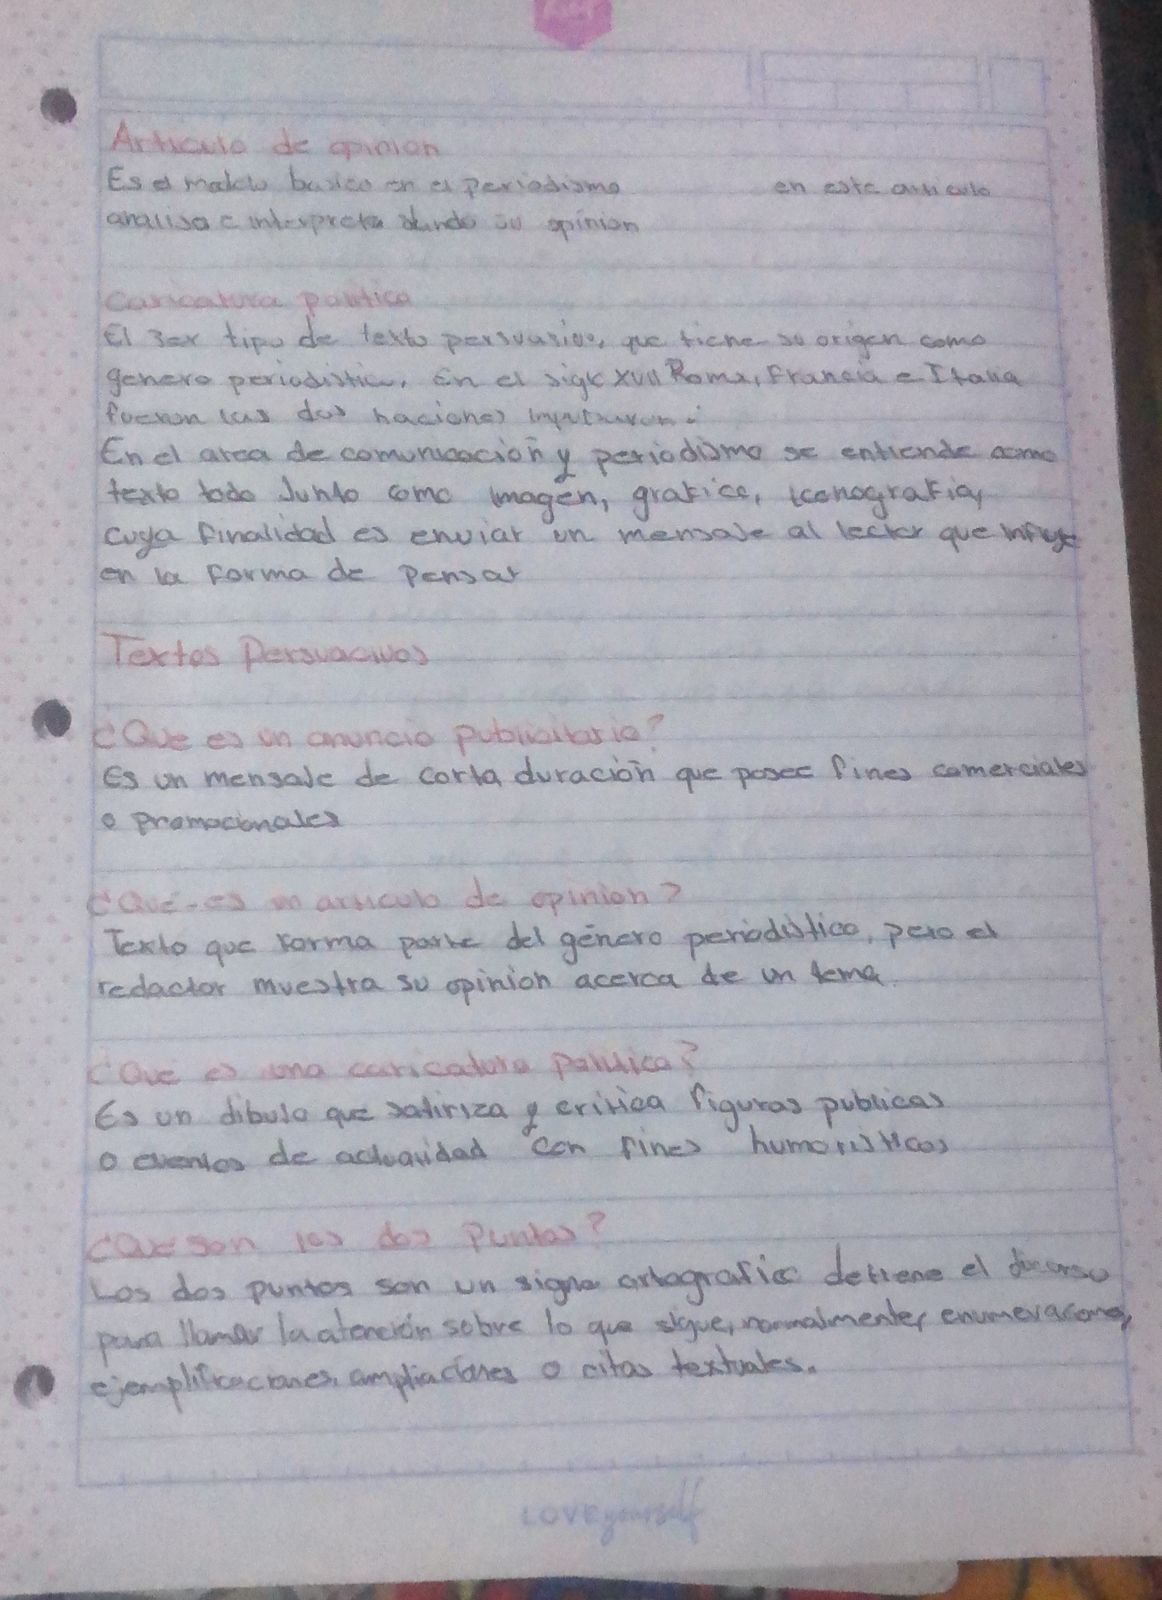 Articulo de opinion
Es el modelo basico en el periodismo en este articulo
analisa e interpreta dando su opinion
Caricatura politica
El 3er tipo de texto persuasivo, que tiene su origen como
genero periodistico, En el siglo XVII Roma, Francia e Italia
fueron las dos naciones
En el area de comunicación y periodismo se entiende como
texto todo Junto como imagen, grafico, iconografia,
cuya finalidad es enviar un mensaje al lector que influye
en la forma de pensar
Textos Persuacivos
¿Que es un anuncio publicitario?
Es un mensaje de corta duración que posee fines comerciales
o promocionales
¿Qué es un articulo de opinion?
Texto que forma parte del género periodístico, pero el
redactor muestra su opinion acerca de un tema.
¿Que es una caricatura politica?
Es un dibujo que satiriza y critica figuras publicas
o eventos de actualidad con fines humoristicos
¿Que son los dos puntos?
Los dos puntos son un signo ortografico detiene el discurso
para llamar la atención sobre lo que sigue, normalmente, enumeraciones,
ejemplificaciones, ampliaciones o citas textuales.
LOVE yourself